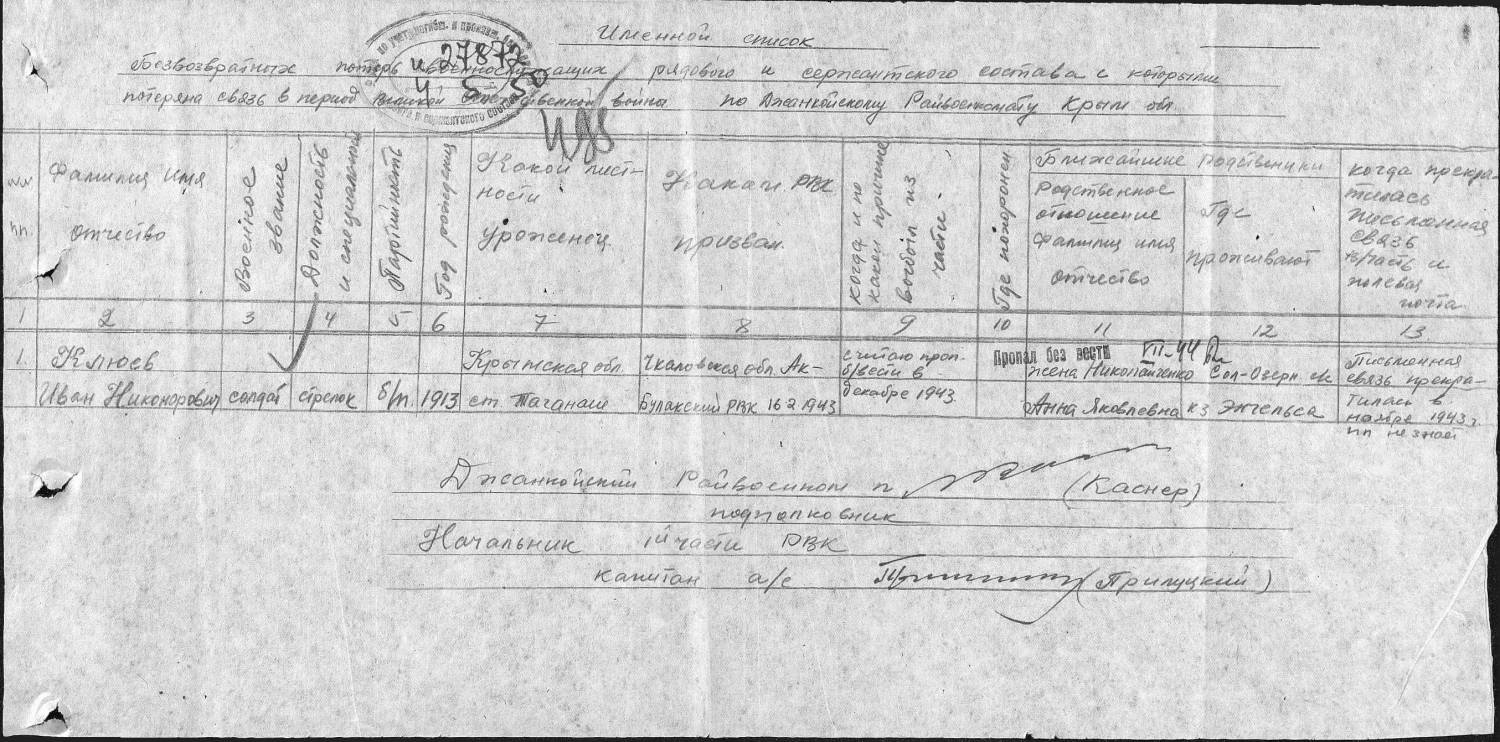 Именной список
Безвозвратных потерь военнослужащих рядового и сержантского состава с которыми
потеряна связь в период великой отечественной война по Джанкойскому Райвоенкомату Крым обл
по учету погибш. и пропавш.
и сержантского состава
и 27872
4 5 50
NN пп.
Фамилия имя отчество
Военное звание
Должность и специальность
Партийность
Год рождения
Какой мест-
ности
уроженец.
Каким РВК
призван.
когда и по какой причине выбыл из части.
Где похоронен.
Ближайшие родственики
Родственное
отношение
фамилия имя
отчество
Где
проживают
когда прекра-
тилась
письменная
связь
в/часть и
полевая
почта
1 2 3 4 5 6 7 8 9 10 11 12 13
1. Клюев
Иван Никонорович
солдат
стрелок
б/п
1913
Крымская обл.
ст. Таганаш
Чкаловская обл. Ак-
Булакский РВК 16 2 1943
считаю проп.
б/вести в
декабре 1943
Пропал без вести VII-44
жена Николайченко
Анна Яковлевна
Сол-Озерн
кз Энгельса
Письменная
связь прекра-
тилась в
ноябре 1943 г.
пп не знает
Джанкойский Райвоенком п (Каснер)
подполковник
Начальник III части РВК
капитан а/с (Прилуцкий)